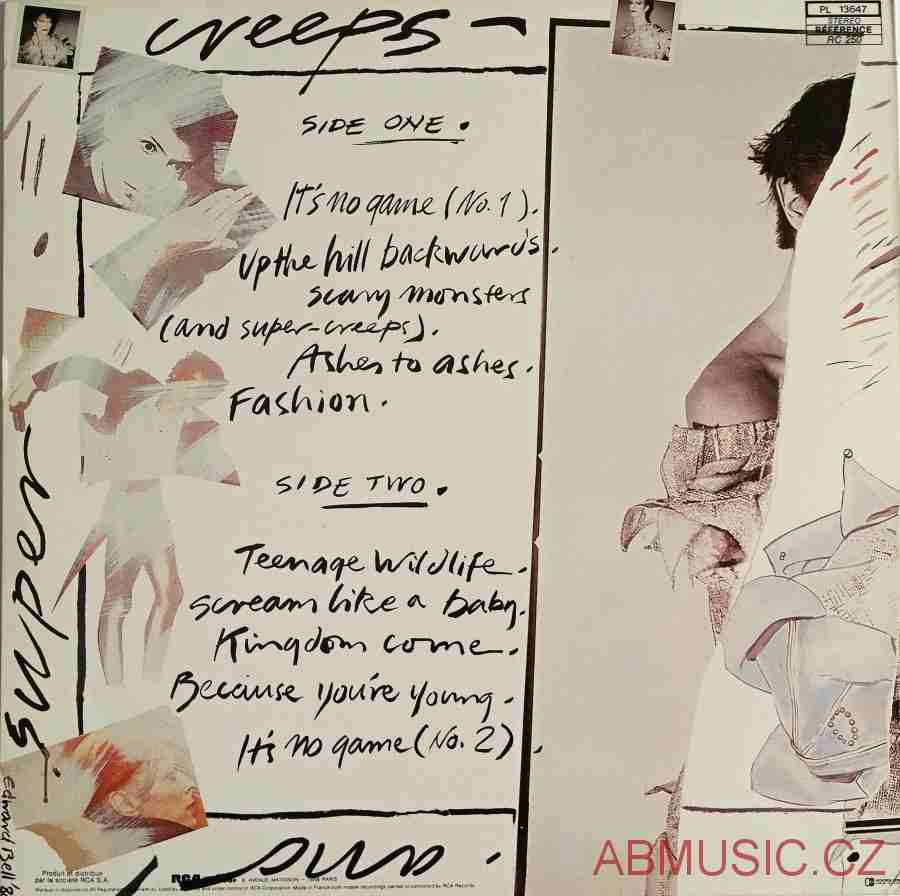 creeps -
PL 13647
STEREO
REFERENCE
RC 250
SIDE ONE.
It's no game (No. 1).
Up the hill backwards.
scary monsters
(and super-creeps).
Ashes to ashes.
Fashion.
SIDE TWO.
Teenage Wildlife.
scream like a baby.
Kingdom come.
Because you're young.
It's no game (No. 2).
super
Edward Bell '80
Produit et distribué
par la société RCA S.A.
RCA
ABMUSIC.CZ